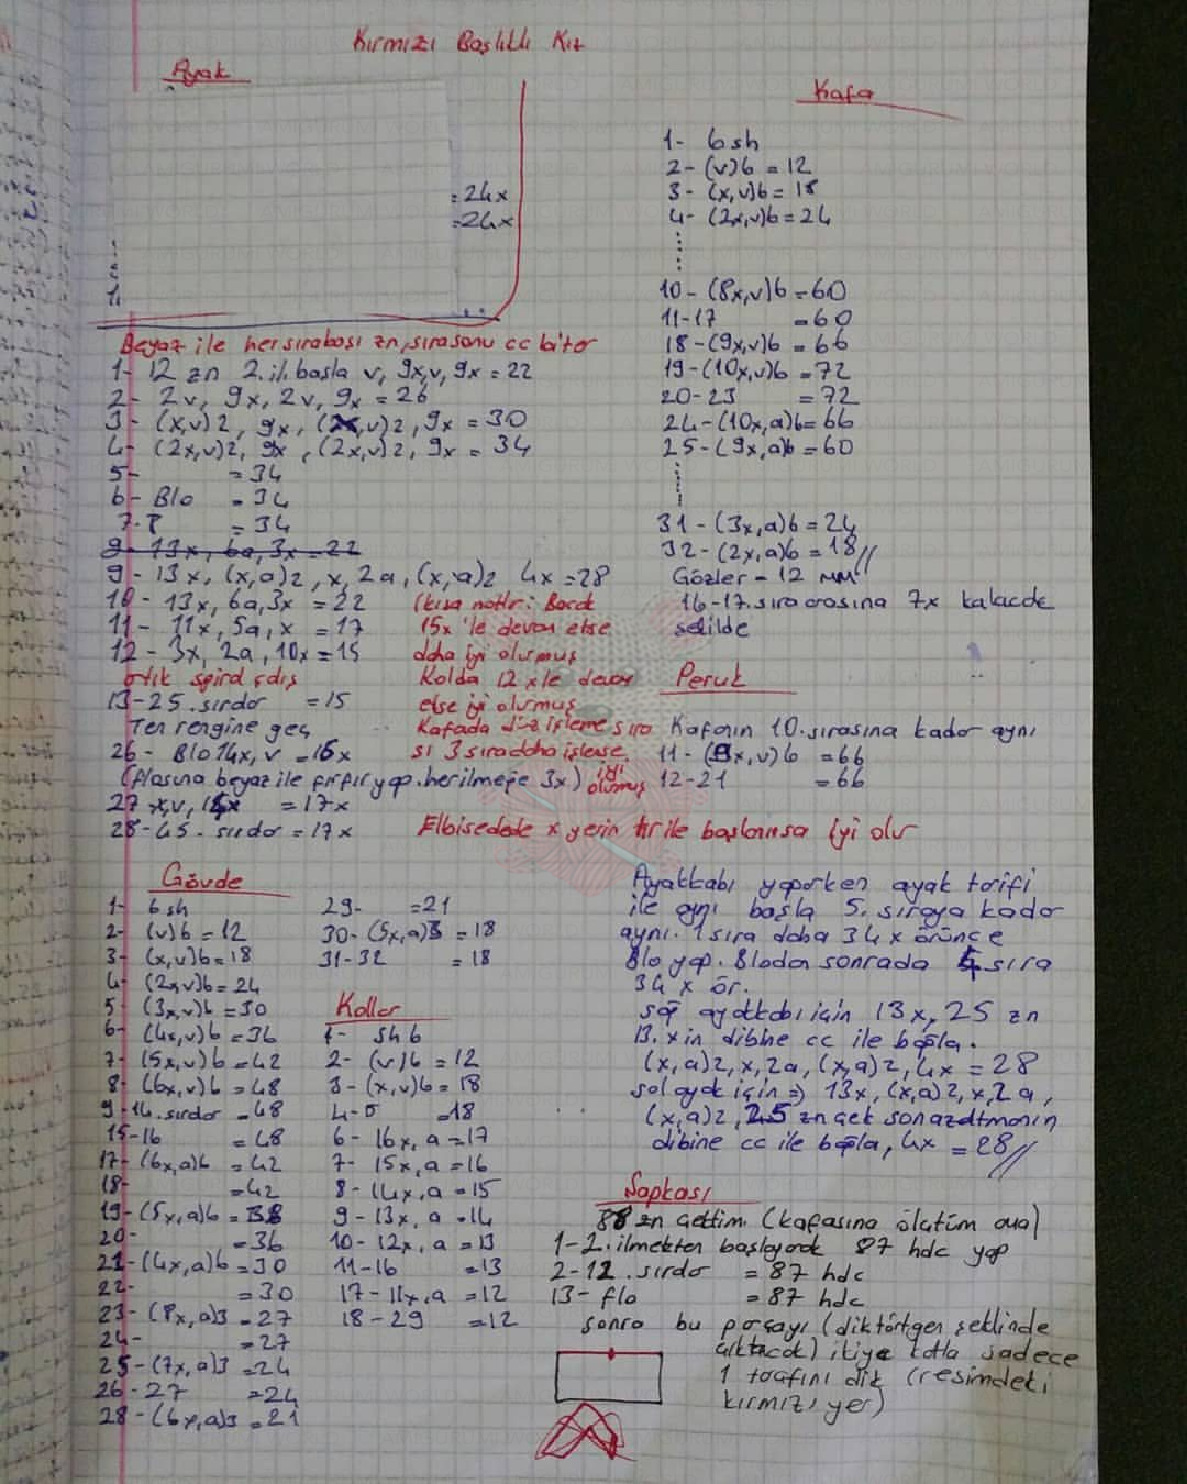 Kırmızı Başlıklı Kız
Ayak
= 24x
= 24x
Beyaz ile her sırabaşı zn, sırasonu cc biter
1- 12 zn 2. il. basla v, 9x, v, 9x = 22
2- 2v, 9x, 2v, 9x = 26
3- (x,v)2, 9x, (x,v)2, 9x = 30
4- (2x,v)2, 9x, (2x,v)2, 9x = 34
5- = 34
6- Blo = 34
7- = 34
9- 13x, 6a, 3x = 22
9- 13x, (x,a)2, x, 2a, (x,a)2 4x = 28
10- 13x, 6a, 3x = 22
11- 11x, 5a, x = 17
12- 3x, 2a, 10x = 15
13-25. sırdor = 15
Ten rengine geç
26- Blo 14x, v = 16x
(Alasına beyaz ile fırfır yap. herilmeğe 3x)
27 x,v, 15x = 17x
28-45. sırdor = 17x
(kısa notlr: Bacak
15x 'le devam etse
daha iyi olurmuş
Kolda 12 x le devam
etse iyi olurmuş
Kafada düz işleme sıra
sı 3 sıra daha işlense
iyi
olurmuş
Elbisedede x yerin tr ile başlanırsa iyi olur
Gövde
1- 6 sh
2- (v)6 = 12
3- (x,v)6 = 18
4- (2x,v)6 = 24
5- (3x,v)6 = 30
6- (4x,v)6 = 36
7- (5x,v)6 = 42
8- (6x,v)6 = 48
9-14. sırdor = 48
15-16 = 48
17- (6x,a)6 = 42
18- = 42
19- (5x,a)6 = 36
20- = 36
21- (4x,a)6 = 30
22- = 30
23- (8x,a)3 = 27
24- = 27
25- (7x,a)3 = 24
26-27 = 24
28- (6x,a)3 = 21
29- = 21
30- (5x,a)3 = 18
31-32 = 18
Kollar
1- sh 6
2- (v)6 = 12
3- (x,v)6 = 18
4-5 = 18
6- 16x, a = 17
7- 15x, a = 16
8- 14x, a = 15
9- 13x, a = 14
10- 12x, a = 13
11-16 = 13
17- 11x, a = 12
18-29 = 12
Kafa
1- 6 sh
2- (v)6 = 12
3- (x,v)6 = 18
4- (2x,v)6 = 24
10- (8x,v)6 = 60
11-17 = 60
18- (9x,v)6 = 66
19- (10x,v)6 = 72
20-23 = 72
24- (10x,a)6 = 66
25- (9x,a)6 = 60
31- (3x,a)6 = 24
32- (2x,a)6 = 18//
Gözler - 12 MM
16-17. sıra arasına 7x kalacak
şekilde
Peruk
Kafanın 10. sırasına kadar aynı
11- (9x,v)6 = 66
12-21 = 66
Ayakkabı yaparken ayak tarifi
ile aynı başla 5. sıraya kadar
aynı. 1 sıra daha 34 x örünce
Blo yap. Blodan sonrada 4 sıra
34 x ör.
sağ ayakkabı için 13x, 25 zn
13. x in dibine cc ile bağla.
(x,a)2, x, 2a, (x,a)2, 4x = 28
sol ayak için => 13x, (x,a)2, x, 2a,
(x,a)2, 25 zn çek son azaltmanın
dibine cc ile bağla, 4x = 28//
Şapkası
88 zn çektim (kafasına ölçtüm ama)
1- 2. ilmekten başlayarak 87 hdc yap
2-12. sırdor = 87 hdc
13- flo = 87 hdc
sonra bu parçayı (diktörtgen şeklinde
çıktacak) ikiye katla sadece
1 tarafını dik (resimdeki
kırmızı yer)